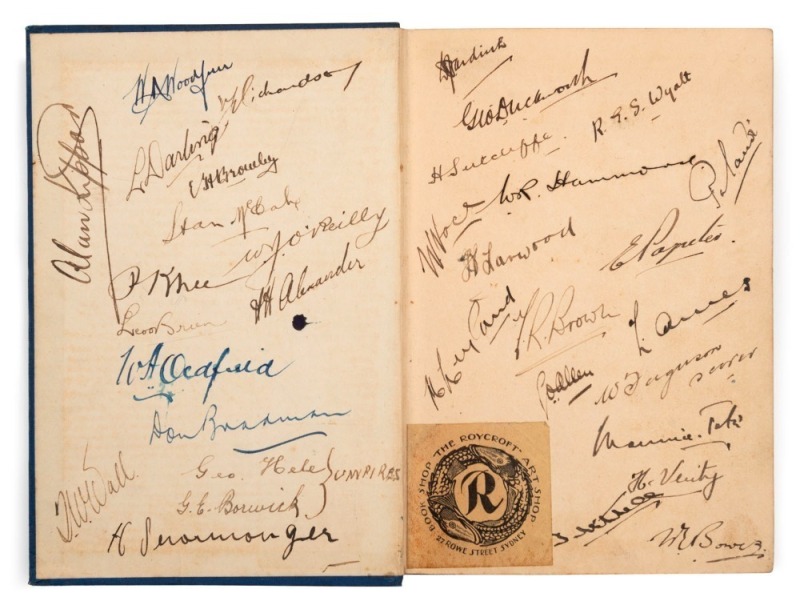 W M Woodfull
V Y Richardson
Alan Kippax
L Darling
E H Bromley
Stan McCabe
W J O'Reilly
P K Lee
H H Alexander
Leo O'Brien
W A Oldfield
Don Bradman
Geo Hele
UMPIRES
G. E. Borwick
T. W. Wall
H Ironmonger
D R Jardine
Geo Duckworth
R. E. S. Wyatt
H Sutcliffe.
W R. Hammond
Pataudi
W Voce
H Larwood
E Paynter.
F. R. Brown
L Ames
G O Allen
W Ferguson
scorer
Maurice. Tate
H. Verity
W E Bowes.
BOOK SHOP · THE ROYCROFT · ART SHOP
R
27 ROWE STREET SYDNEY